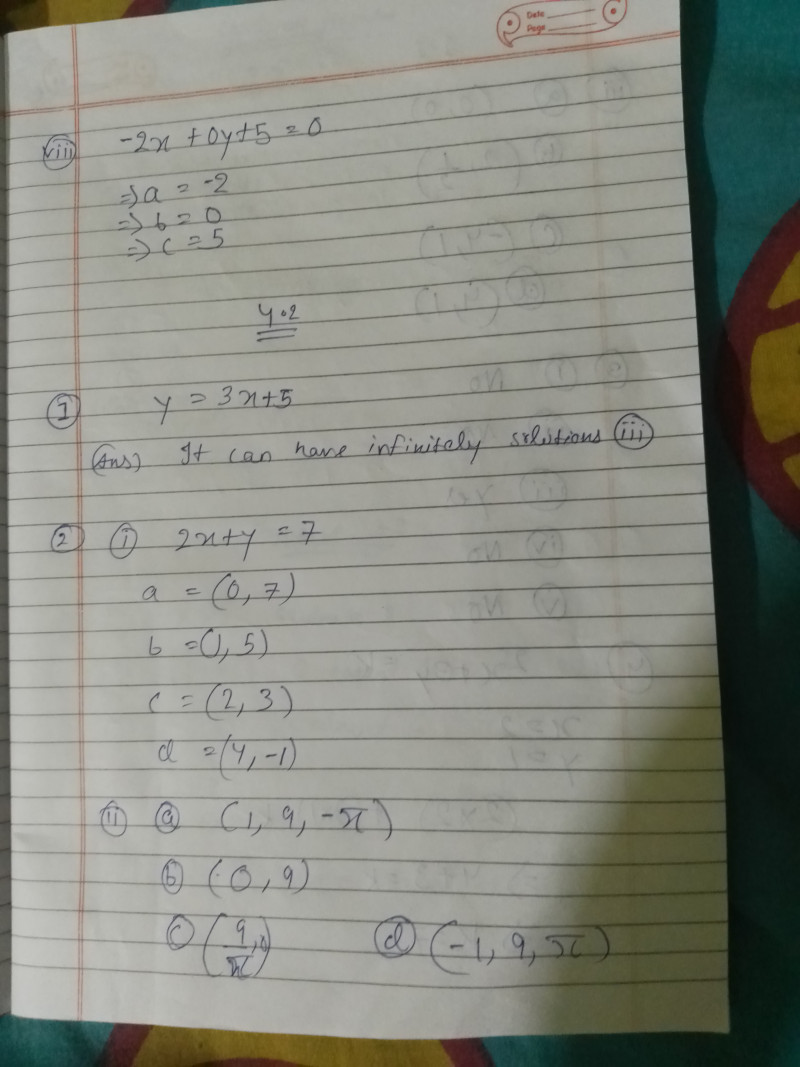 Date
Page
viii -2x + 0y + 5 = 0
⇒ a = -2
⇒ b = 0
⇒ c = 5
4.2
1 y = 3x + 5
(Ans) It can have infinitely solutions iii
2 i 2x + y = 7
a = (0, 7)
b = (1, 5)
c = (2, 3)
d = (4, -1)
ii a (1, 9, -π)
b (0, 9)
c (9/π, 0) d (-1, 9, π)